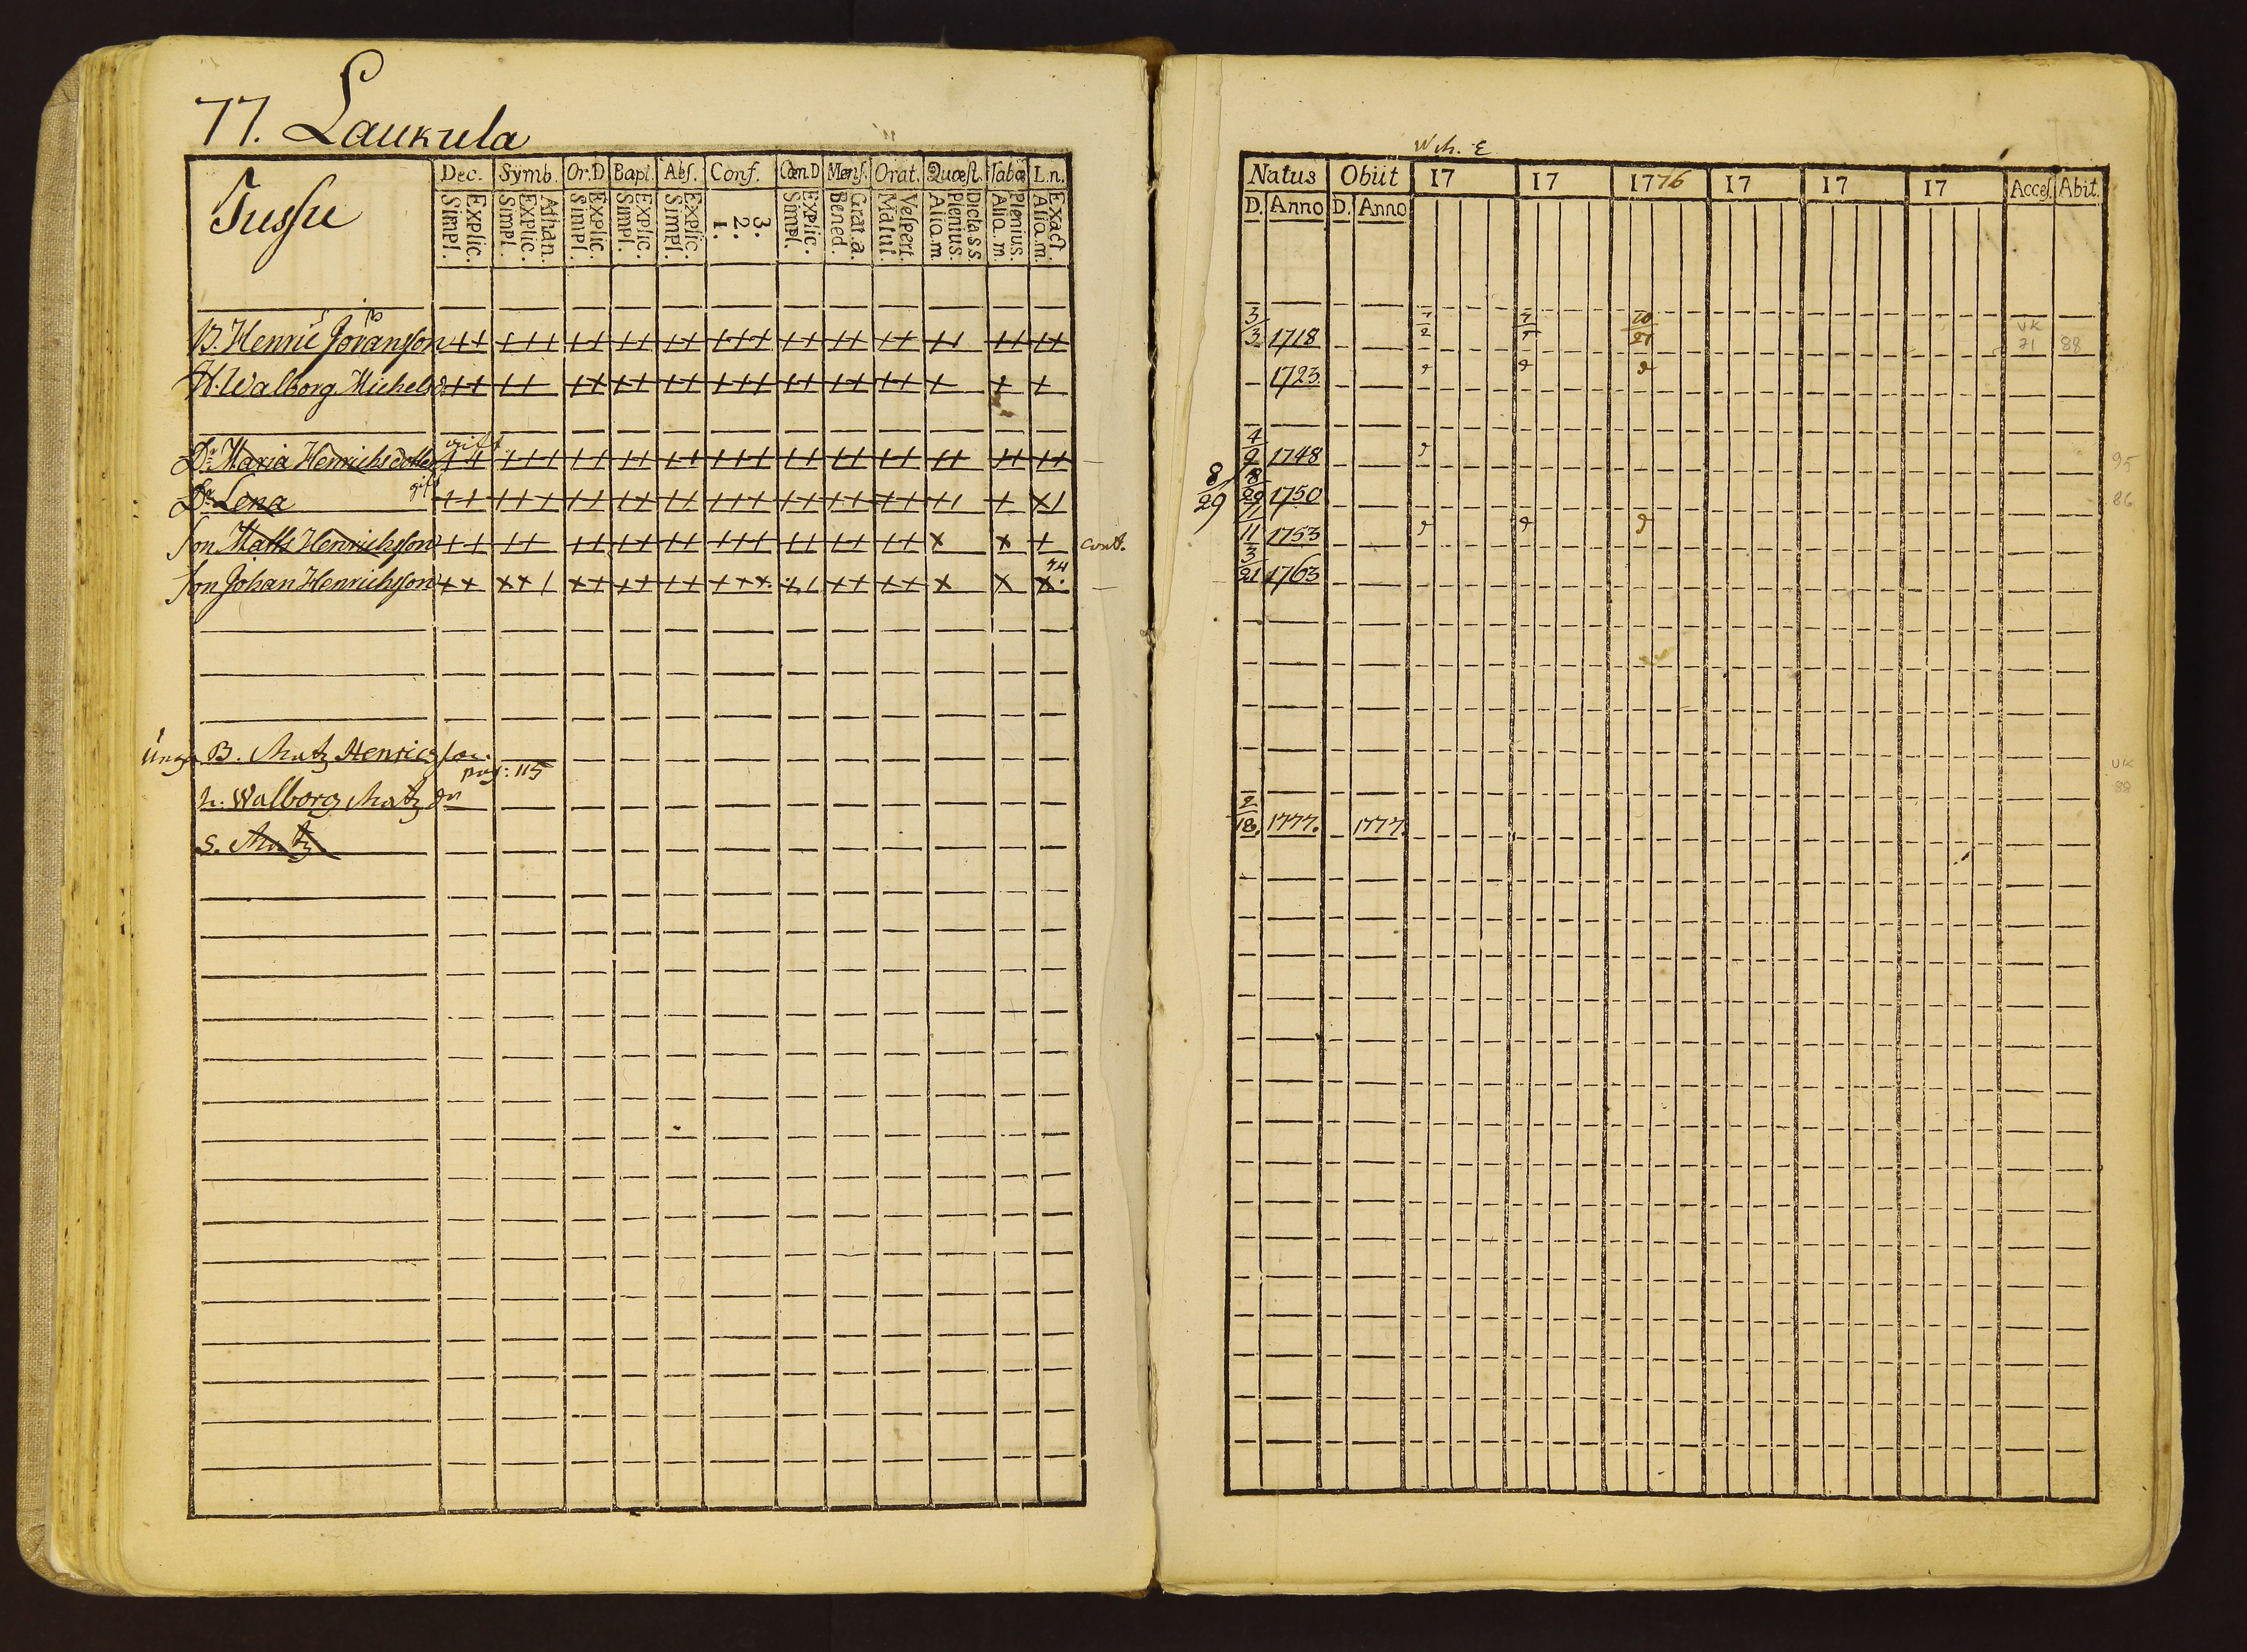 77. Laukula
Jussu
Dec. Symb. Or.D Bapt. Abs. Conf. Cœn.D Mens. Orat. Quæst. Tabœ L.n.
Explic. Simpl. Athan. Explic. Simpl. Explic. Simpl. Explic. Simpl. Explic. Simpl. 3. 2. 1. Explic. Simpl. Grat.a. Bened. Vespert. Matut. Dicta S.S. Plenius. Aliq.m. Plenius. Aliq.m. Exact. Aliq.m.
B. Henric Jöranson
H. Walborg Michelsd
gift
Dr. Maria Henrichsdotter
Dr. Lena gift
Son Matts Henrichson
cont.
Son Johan Henrichson
Unge B. Matz Henricsson
pag: 115
h. Walborg Matz dr
S. Matz
Natus Obiit 17 17 1776 17 17 17 Acces. Abit.
D. Anno D. Anno
3/3 1718 10/21 UK 71 88
1723.
4/9 1748 95
8/29 8/29 1750 86
11/11 1753
3/21 1763
UK
88
2/18. 1777. 1777.